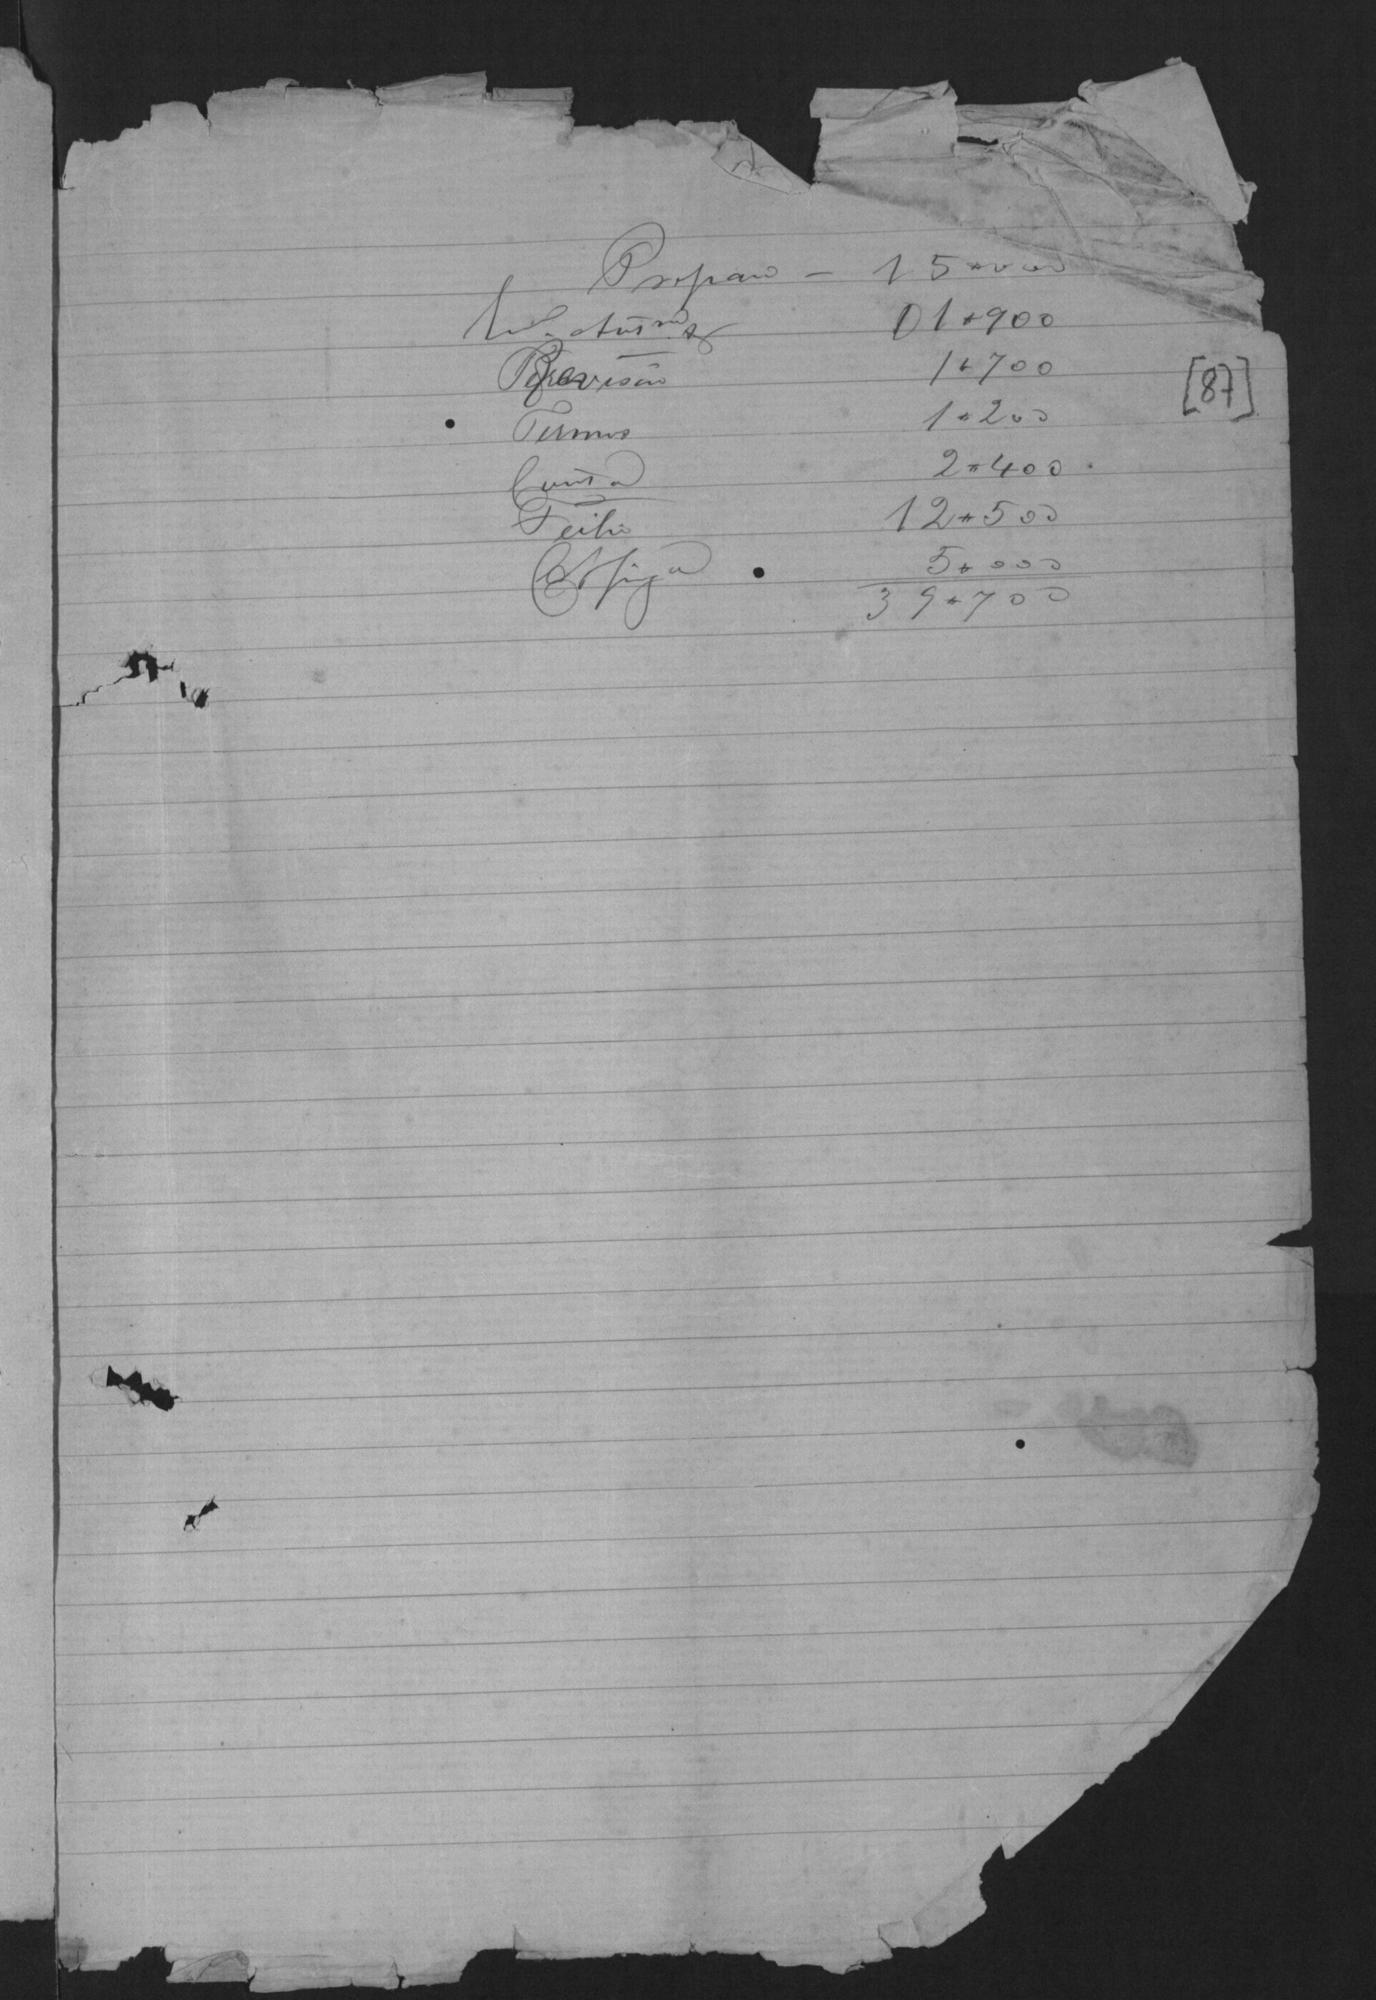 Preparo — 15*000
01*900
Provisão 1*700
[87]
Termos 1*200
Conta 2*400
Feitio 12*500
5*000
39*700